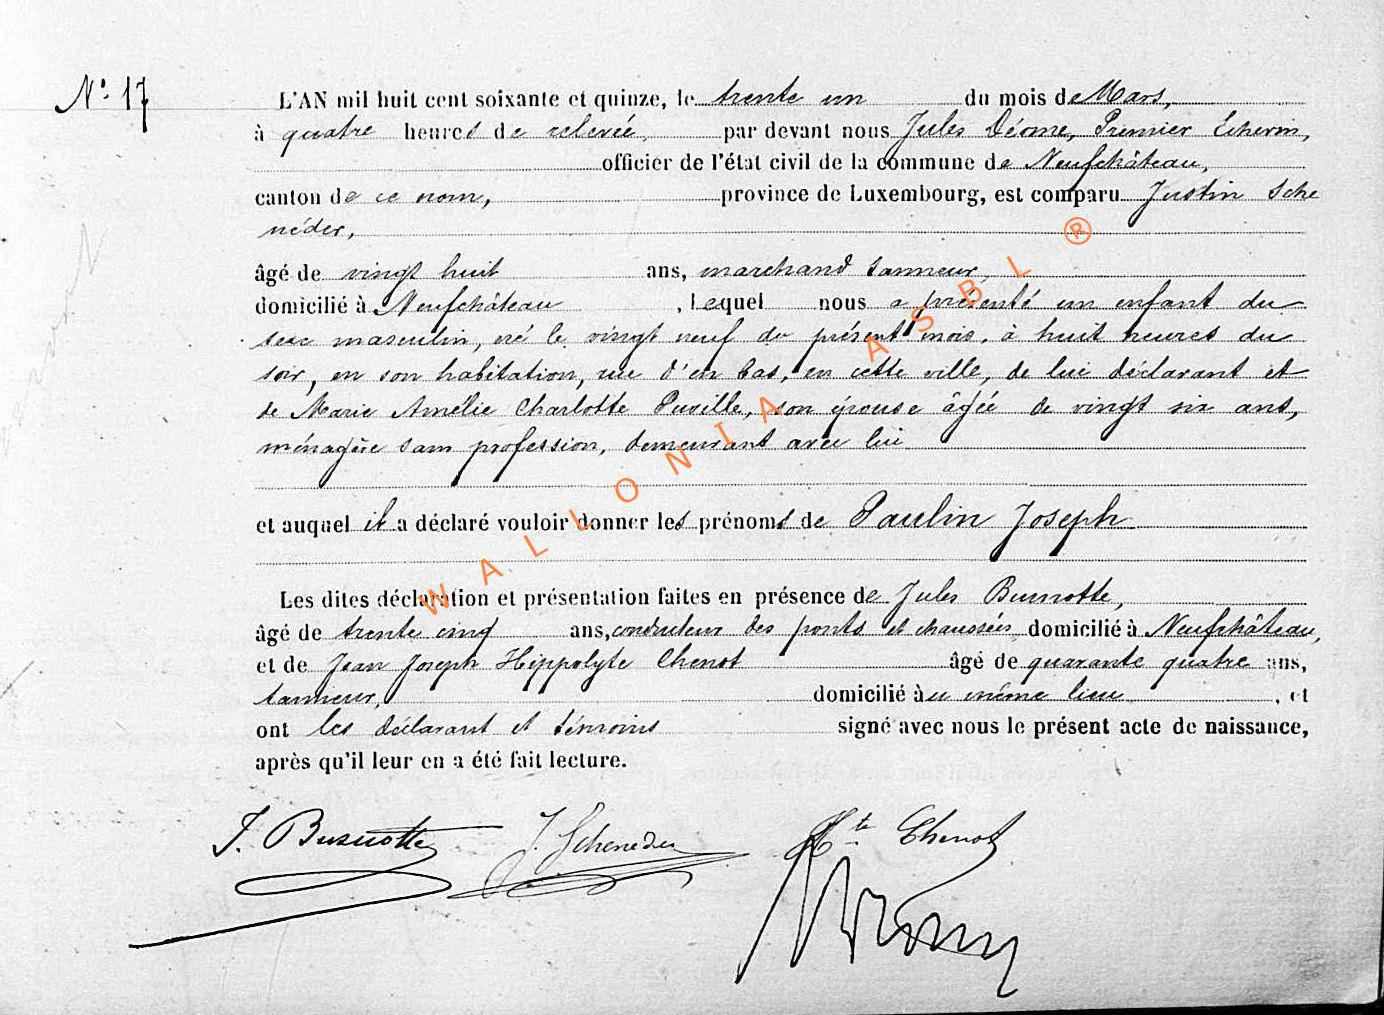 N° 17
L'AN mil huit cent soixante et quinze, le trente un du mois de Mars,
à quatre heures de relevée, par devant nous Jules Déome, Premier Echevin,
officier de l'état civil de la commune de Neufchâteau,
canton de ce nom, province de Luxembourg, est comparu Justin Sche
néder,
âgé de vingt huit ans, marchand tanneur,
domicilié à Neufchâteau, lequel nous a présenté un enfant du
sexe masculin, né le vingt neuf du présent mois, à huit heures du
soir, en son habitation, rue d'en bas, en cette ville, de lui déclarant et
de Marie Amélie Charlotte, son épouse âgée de vingt six ans,
ménagère sans profession, demeurant avec lui
et auquel il a déclaré vouloir donner les prénoms de Paulin Joseph
Les dites déclaration et présentation faites en présence de Jules Burnotte,
âgé de trente cinq ans, conducteur des ponts et chaussées domicilié à Neufchâteau,
et de Jean Joseph Hippolyte Chenot âgé de quarante quatre ans,
tanneur, domicilié au même lieu, et
ont les déclarant et témoins signé avec nous le présent acte de naissance,
après qu'il leur en a été fait lecture.
J. Burnotte J. Scheneder Hte Chenot
WALLONIA ASBL ®